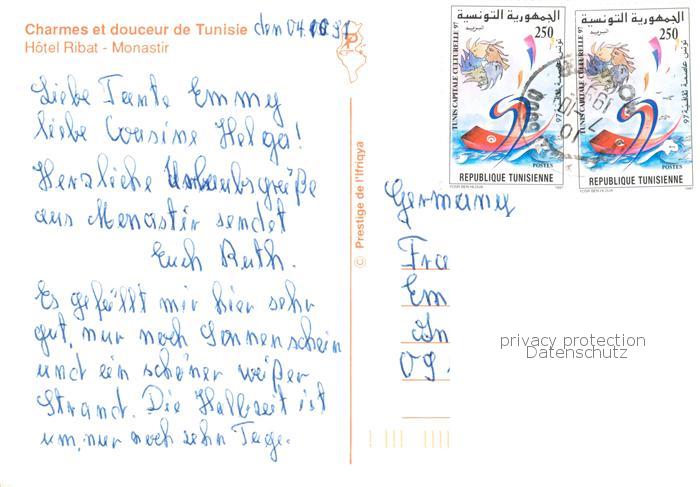 Charmes et douceur de Tunisie den 04.10.97
Hôtel Ribat - Monastir
Liebe Tante Emmy
liebe Cousine Helga!
Herzliche Urlaubsgrüße
aus Monastir sendet
Euch Ruth.
Es gefällt mir hier sehr
gut, nur noch Sonnenschein
und ein schöner weißer
Strand. Die Halbzeit ist
um, nur noch zehn Tage.
© Prestige de l'Ifriqya
الجمهورية التونسية
250
TUNIS CAPITALE CULTURELLE 97
تونس عاصمة ثقافية 97
POSTES
REPUBLIQUE TUNISIENNE
1997
الجمهورية التونسية
250
TUNIS CAPITALE CULTURELLE 97
تونس عاصمة ثقافية 97
POSTES
REPUBLIQUE TUNISIENNE
1997
Germany
Fra
Em
In
09
privacy protection
Datenschutz